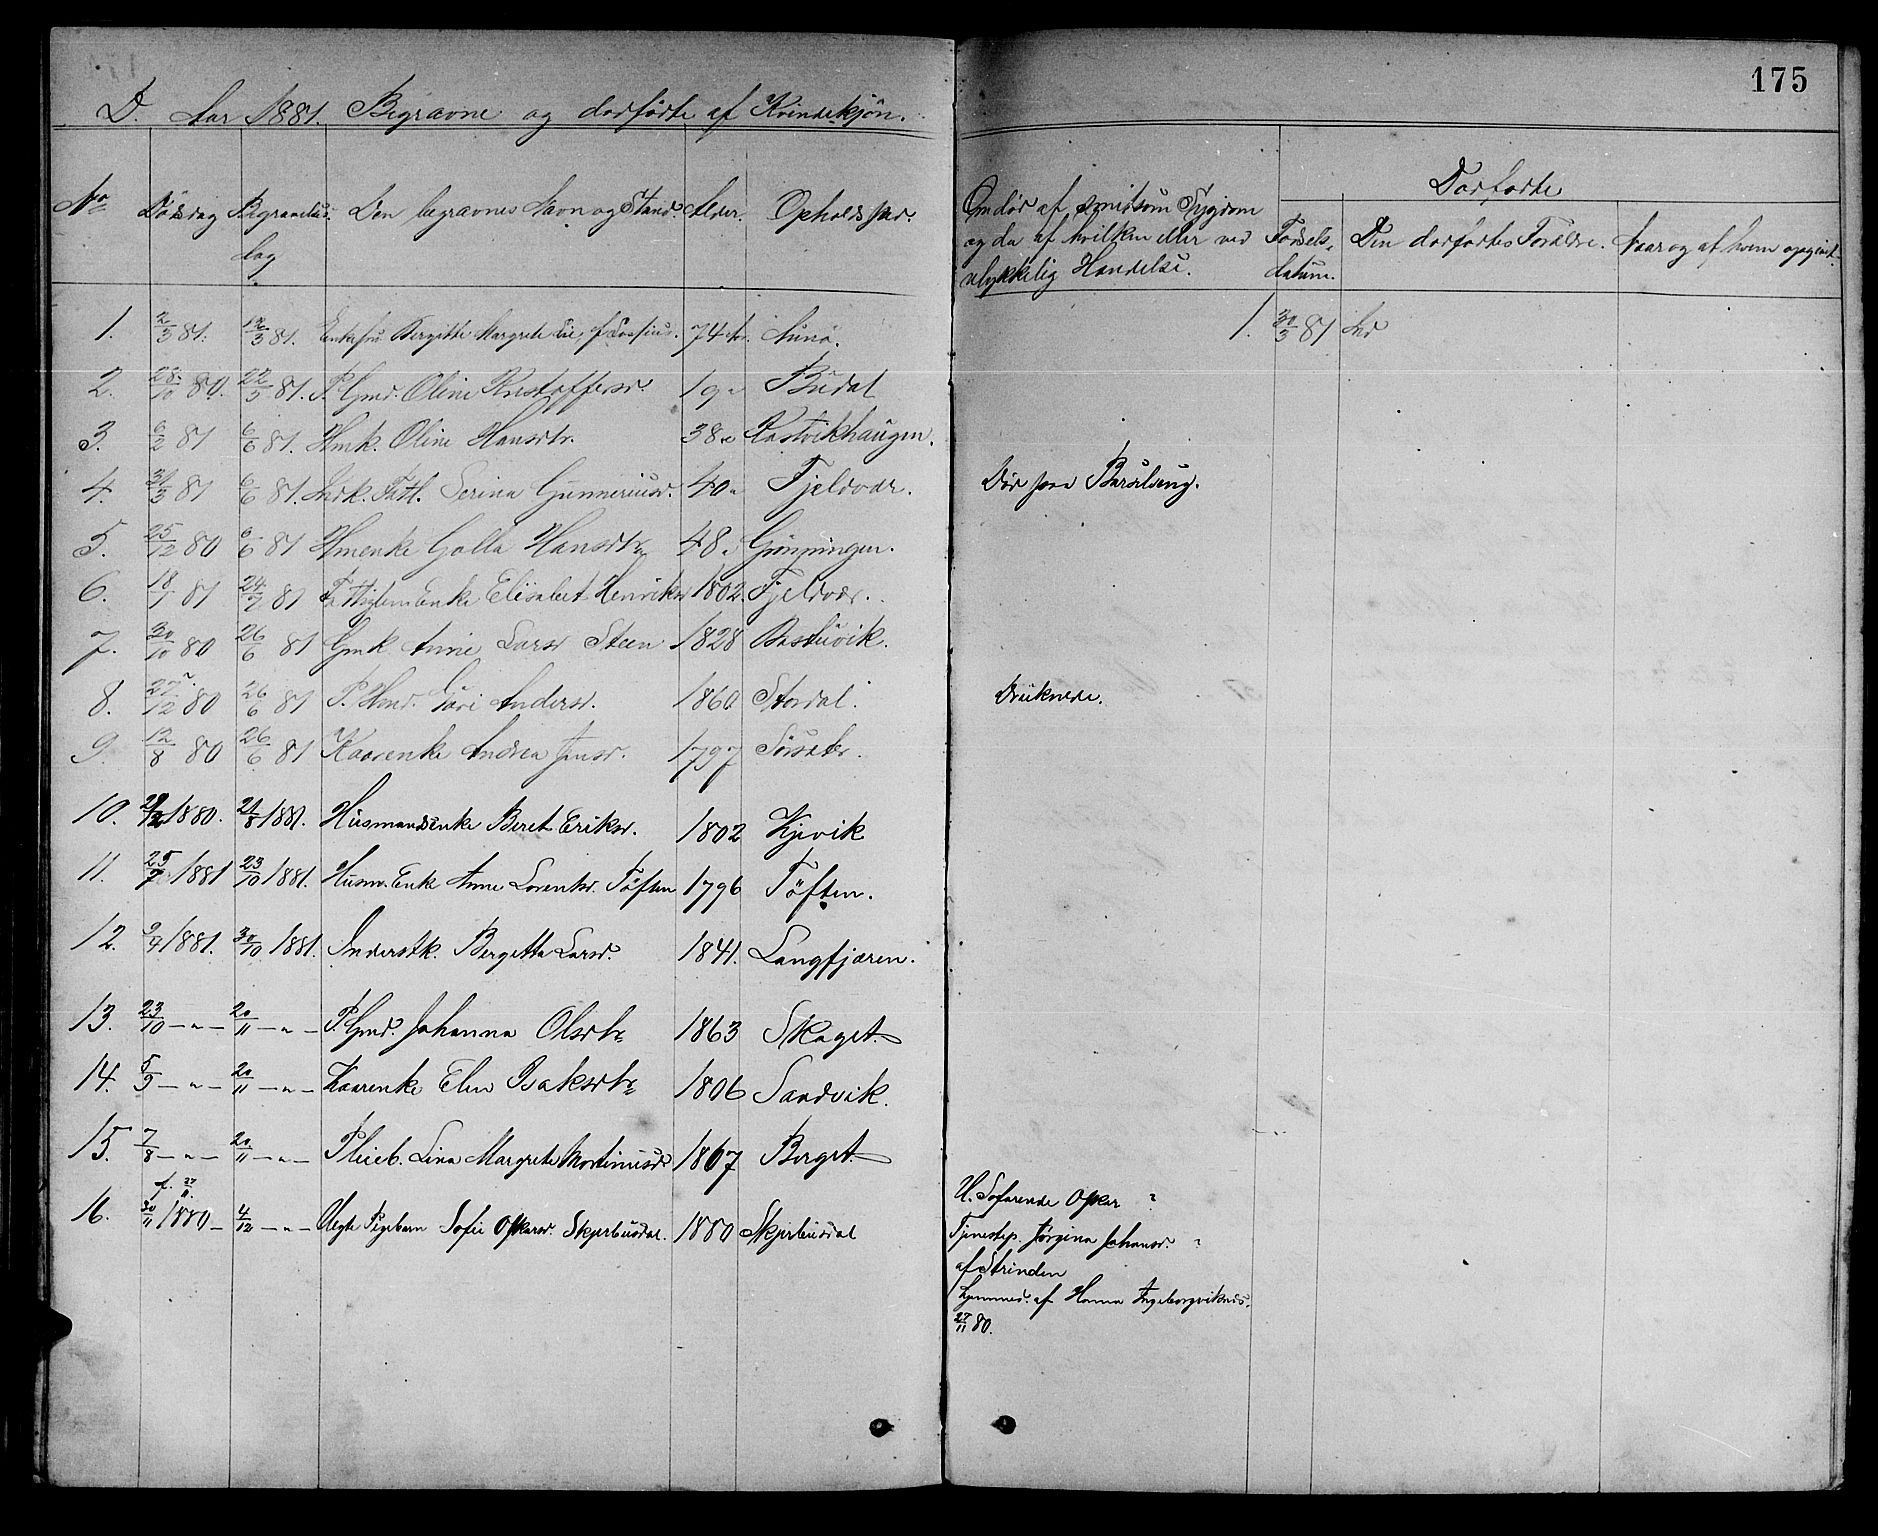 175
D. Aar 1881. Begravne og dødfødte af Kvindekjøn.
No Dødsdag Begravelsesdag Den begravnes Navn og Stand Alder. Opholdssted.
Om død af smitsom Sygdom og da af hvilken eller ved ulykkelig Hændelse.
Dødfødte
Fødselsdatum. Den dødfødtes Forældre. Naar og af hvem opgivet
1. 2/3 81. 12/3 81. Enkefru Bergitte Margrete 74 Aar.
1. 30/3 81
2. 28/10 80. 22/5 81. P. Gmd. Oline Kristoffersd. 19 " Büdal
3. 6/2 81 6/6 81. Hmk. Oline Hansdtr. 38 " Rastvikhaugen.
4. 31/3 81 6/6 81. Indk. Fattl. Serina Gunneriusd. 40 " Fjeldvær.
Død paa Barselseng.
5. 25/12 80 6/6 81 Hmenke Golla Hansdtr 48 "
6. 18/1 81 24/7 81 Fattiglem Enke Elisabet Henriksd 1802. Fjeldvær.
7. 30/10 80 26/6 81 Gmk. Anne Larsd Steen 1828 Bastuvik.
8. 27/12 80 26/6 81 P. Hmd. Guri Andersd. 1860 Stordal.
Druknede.
9. 12/8 80 26/6 81 Kaarenke Andrea Jensd. 1797 Sørsæter.
10. 1880. 21/8 1881. Husmandsenke Beret Eriksd. 1802 Kjevik
11. 25/7 1881 23/10 1881. Husm. Enke Anne Lorentsd. Tøften 1796 Tøften.
12. 9/4 1881. 30/10 1881. Inderstk. Bergitta Larsd. 1841. Langfjæren.
13. 23/10 — " — 20/11 — " — P. Gmd. Johanna Olsdtr 1863 Skaget.
14. 5/9 — " — 20/11 — " — Kaarenke Elen Isaksdtr 1806 Sandvik.
15. 7/8 — " — 20/11 — " — P. Leieb. Lina Margrete Mortinusd. 1867 Berget.
f. 27/11.
16. 30/11 1880 — 4/12 — " — Uegte Pigebarn Sofie Oskarsd. Skjerbusdal. 1880 Skjerbusdal
U. Sofarende Oskar ?
Tjenestep. Jørgina Johansd. ?
af Strinden
Hjemmed. af Hanna Ingeborgviknes.
27/11 80.